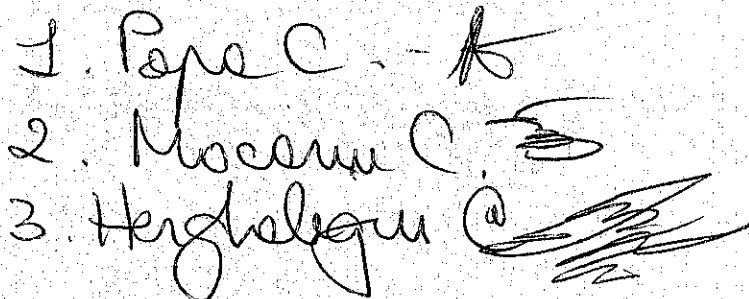 1. Popa C.
2. Mocanu C.
3. Herghelegiu C